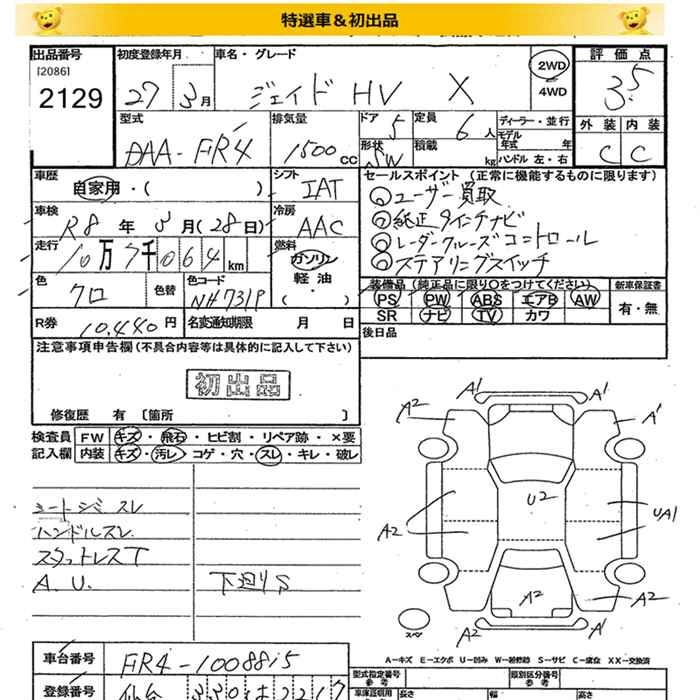 特選車＆初出品
出品番号 初度登録年月 車名・グレード 2WD 4WD 評価点
[2086]
2129 27 3月 ジェイド HV X 3.5
型式 排気量 ドア 定員 ディーラー・並行 外装 内装
DAA-FR4 1500cc 5 6人 モデル年式 年 C C
形状 SW 積載 kg ハンドル 左・右
車歴 シフト セールスポイント (正常に機能するものに限ります)
自家用・( ) IAT ユーザー買取
車検 冷房 純正9インチナビ
R8年3月(28日) AAC レーダークルーズコントロール
走行 燃料 ステアリングスイッチ
10万7千064km ガソリン 軽油 ・( )
色 色替 色コード 装備品 (純正品に限り○をつけてください) 新車保証書
クロ NH731P PS PW ABS エアB AW 有・無
SR ナビ TV カワ
R券 10,440円 名変通知期限 月 日 後日品
注意事項申告欄 (不具合内容等は具体的に記入して下さい)
初出品
修復歴 有 [箇所 ]
検査員 FW キズ・飛石・ヒビ割・リペア跡・×要
記入欄 内装 キズ・汚レ・コゲ・穴・スレ・キレ・破レ
シートシミ スレ
ハンドルスレ
スタットレスT
A.U. 下廻りS
A1 A1
A2 A1
U2 UA1
A2
A2 A2
A2 A1
スペア
A－キズ E－エクボ U－凹み W－補修跡 S－サビ C－腐食 XX－交換済
車台番号 FR4-1008815
型式指定番号 類別区分番号
参考 参考
登録番号 仙台
車庫証明用 長さ 幅 高さ